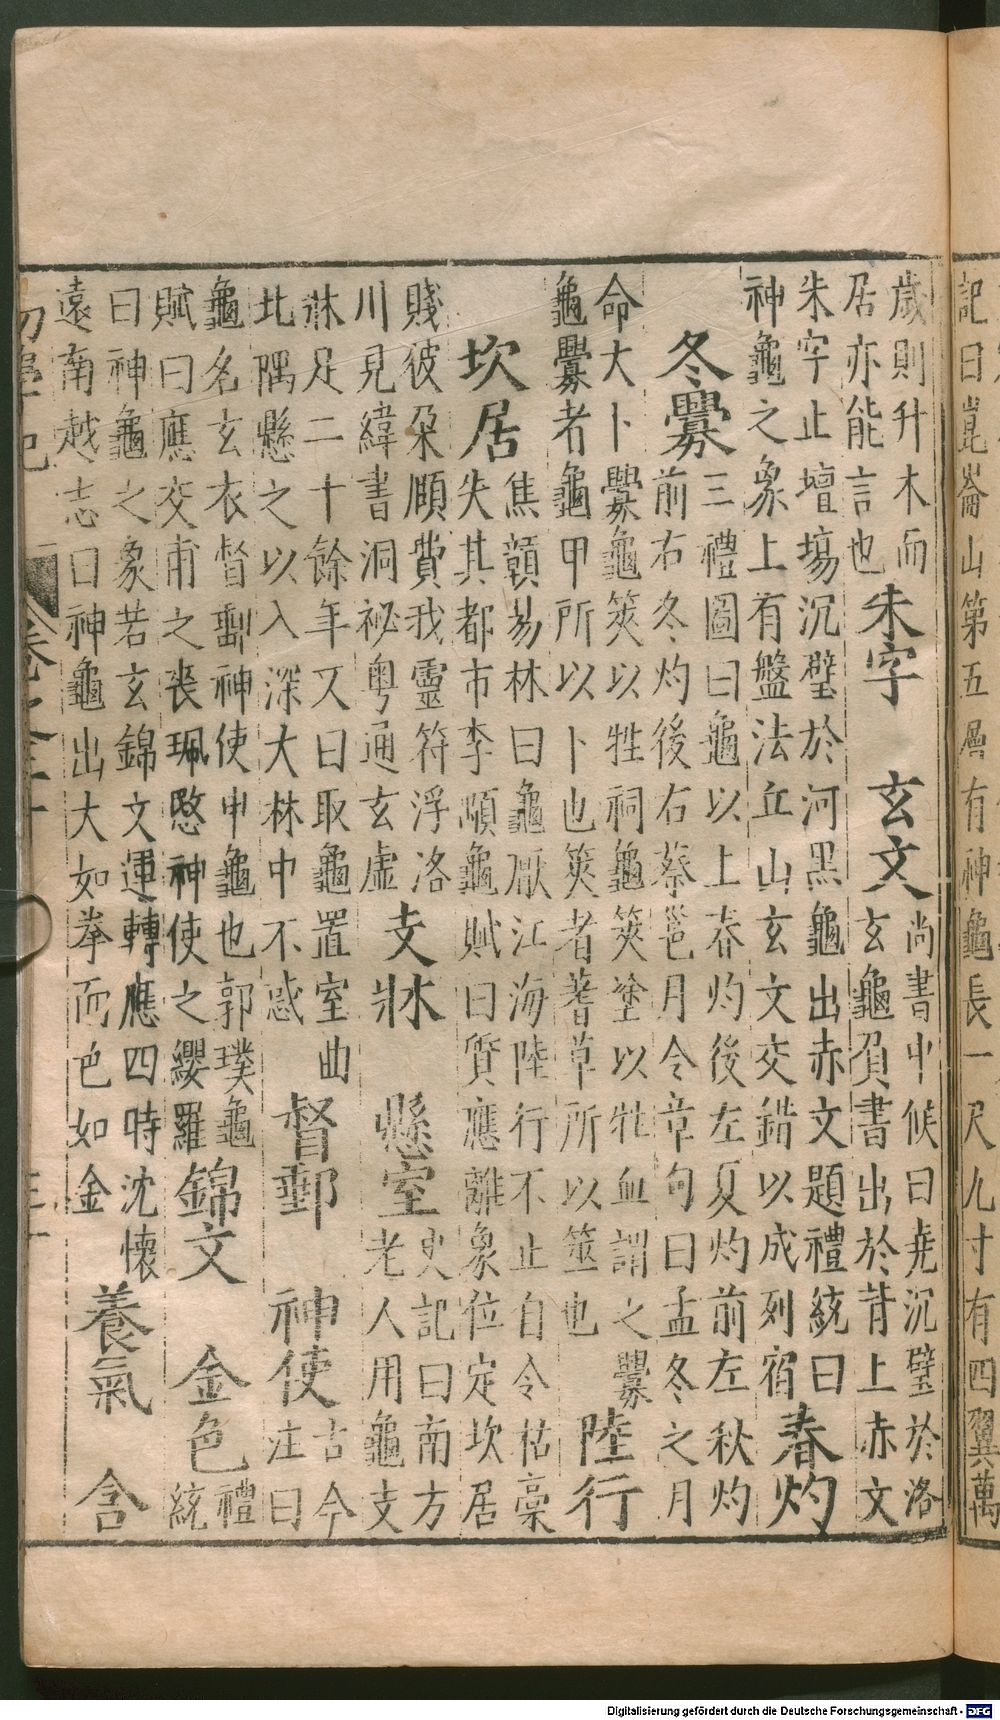 記曰崑崙山第五層有神龜長一尺九寸有四翼萬
歲則升木而
居亦能言也
朱字 玄文
尚書中候曰堯沉璧於洛
玄龜負書出於背上赤文
朱字止壇塲沉璧於河黑龜出赤文題禮統曰
神龜之象上有盤法丘山玄文交錯以成列宿
春灼
冬釁
三禮圖曰龜以上春灼後左夏灼前左秋灼
前右冬灼後右蔡邕月令章句曰孟冬之月
命大卜釁龜筴以牲祠龜筴塗以牲血謂之釁
龜釁者龜甲所以卜也筴者蓍草所以筮也
陸行
坎居
焦贛易林曰龜厭江海陸行不止自令枯槀
失其都市李顒龜賦曰質應離象位定坎居
賤彼朶頤費我靈符浮洛
川見緯書洞祕粵通玄虛
支牀 懸室
史記曰南方
老人用龜支
牀足二十餘年又曰取龜置室曲
北隅懸之以入深大林中不惑
督郵 神使
古今
注曰
龜名玄衣督郵神使中龜也郭璞龜
賦曰應交甫之喪珮愍神使之纓羅
錦文 金色
禮
統
曰神龜之象若玄錦文運轉應四時沈懷
遠南越志曰神龜出大如拳而色如金
養氣 含
初學記 卷之三十
Digitalisierung gefördert durch die Deutsche Forschungsgemeinschaft - DFG